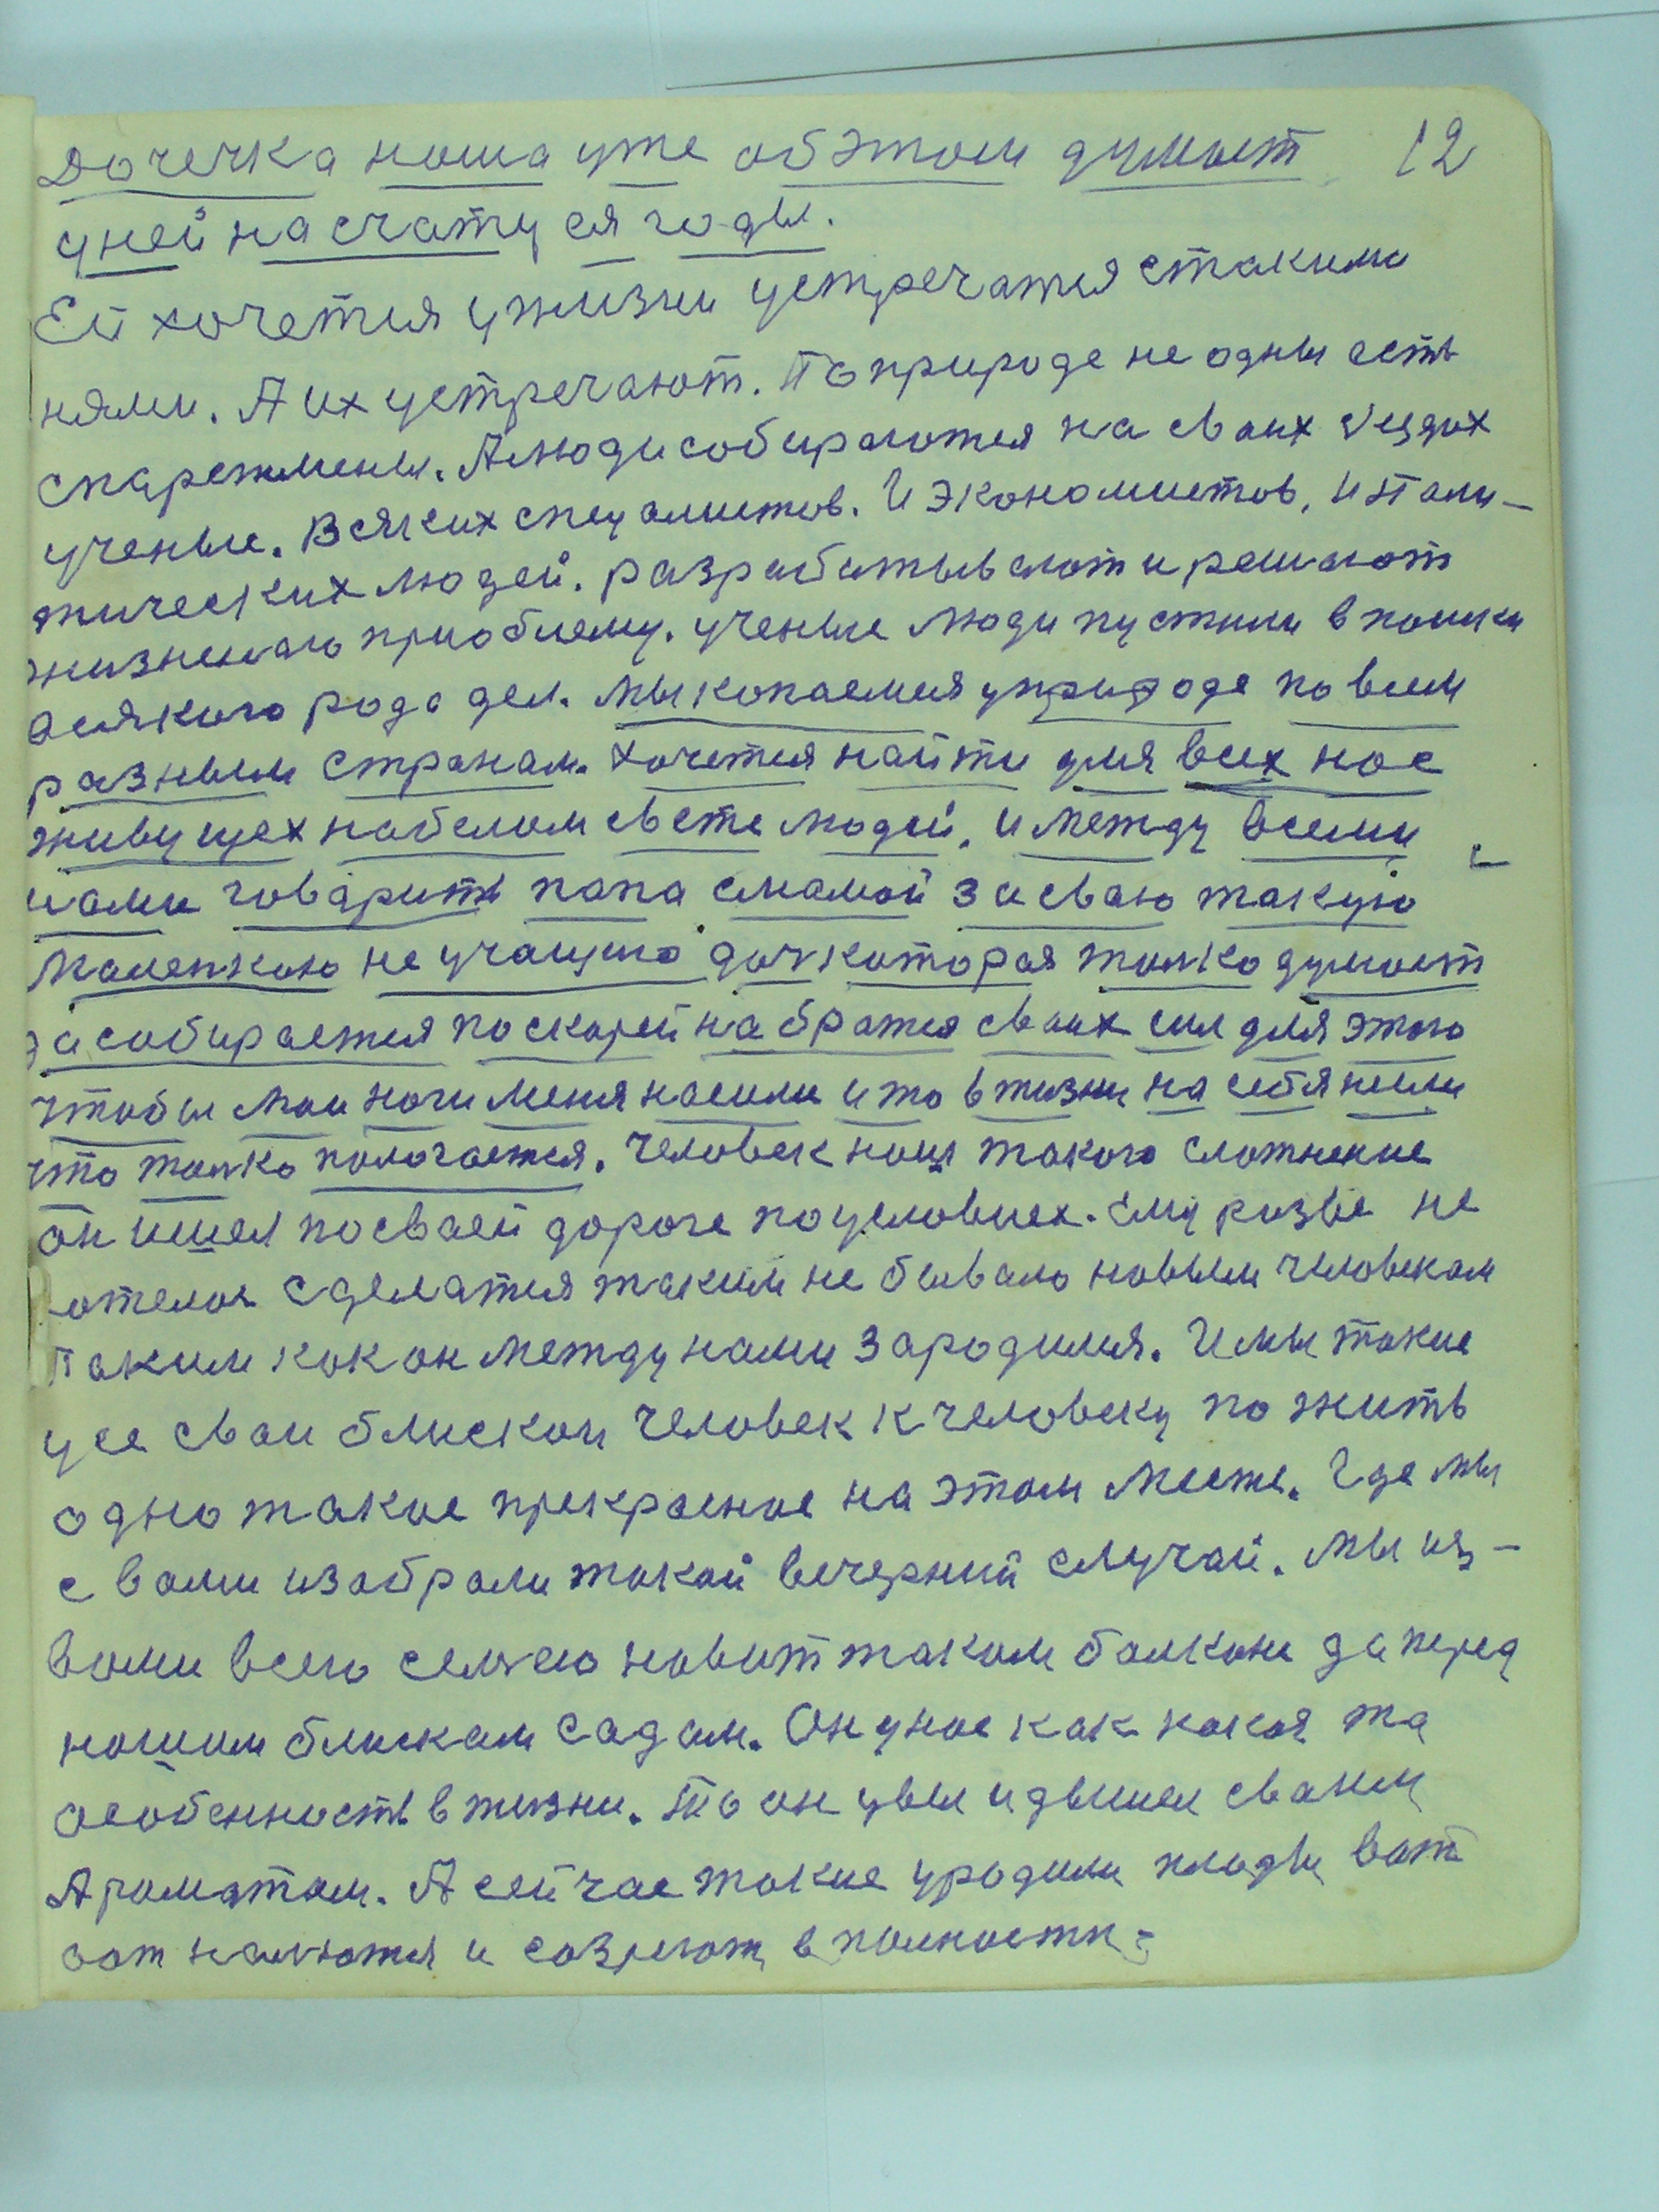 дочечка наша уже об этом думает 12
у ней на счету ея годы.
Ей хочется у жизни устречатся с такими
нями. А их устречают. То природе не одны есть
спарежмены. А люди собираются на своих съездах
ученые. Всяких спецалистов. И экономистов, и поли-
тических людей. разрабатывают и решают
жизненаю приоблему. ученые люди пустили в поиски
всякого рода дел. мы копаемся у природе по всем
разным странам. хочется найти для всех нас
живущех на белом свете людей, и между всеми
нами говарить папа смамой за сваю такую
маленкою не учащую доч которая толко думает
за собирается поскарей набратся сваих сил для этого
чтобы мои ноги меня насили и то в жизни на себя
что толко полочается. Человек наш такого сложнение
он ишел по сваей дороге по условиех. Ему разве не
хотелоя сделатся таким не бывало новым человеком
таким как он между нами зародился. И мы такие
усе сваи блискои человек к человеку по жить
одно такое прекрасное на этом месте. Где мы
с вами изобрали такой вечерний случай. мы из-
вами всею семъею на вот таком балконе да перед
нашим блиским садом. Он у нас как какоя та
особенность в жизни. То он увел и дышел сваим
Ароматом. А сейчас такие уродили плоды вот
вот налются и созреют в полности.